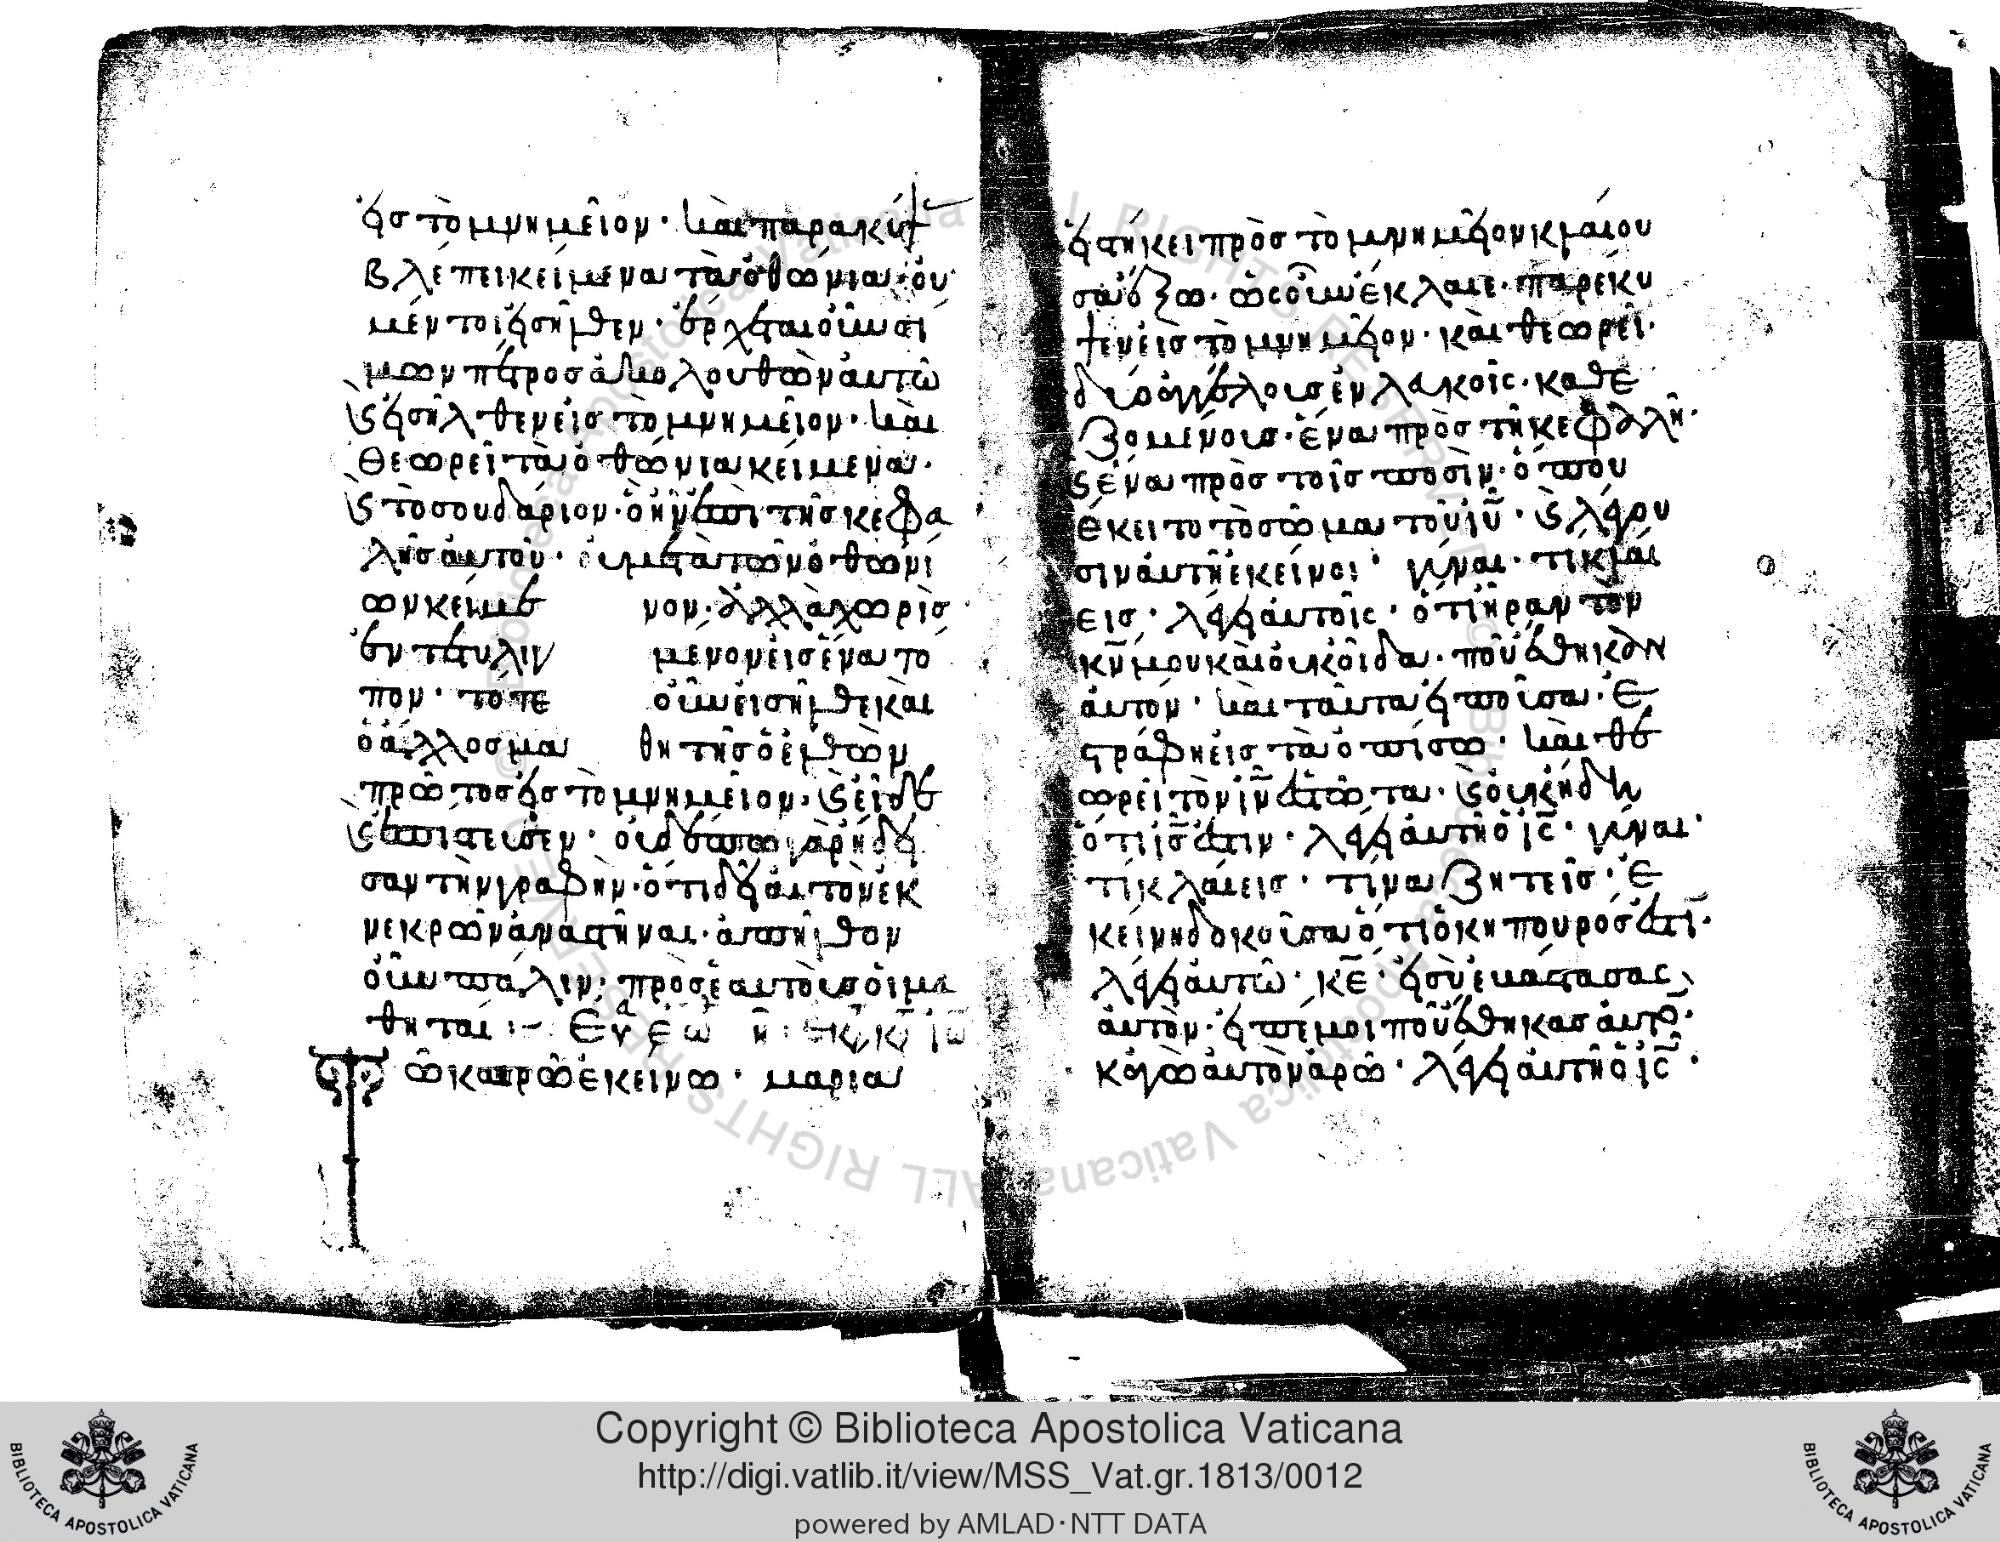 εἰς τὸ μνημεῖον· καὶ παρακύψ
βλέπει κείμενα τὰ ὀθώνια· οὐ
μέν τοι εἰσῆλθεν· ἔρχεται οὖν σι
μων πέτρος ἀκολουθῶν αὐτῶ
ϛ εἰσῆλθεν εἰς τὸ μνημεῖον· καὶ
θεωρεῖ τὰ ὀθώνια κείμενα·
ϛ τὸ σουδάριον· ὃ ἦν ἐπὶ τῆς κεφα
λῆς αὐτοῦ· οὐ μετὰ τῶν ὀθωνί
ων κείμε νον· ἀλλὰ χωρὶς
ἐντετυλιγ μένον εἰς ἕνα τό
πον· τότε οὖν εἰσῆλθε καὶ
ὁ ἄλλος μα θητὴς ὁ ἐλθὼν
πρῶτος εἰς τὸ μνημεῖον· ϛ εἶδε
ϛ ἐπίστευσεν· οὐδέπω γὰρ ἤδει
σαν τὴν γραφὴν· ὅτι δεῖ αὐτὸν ἐκ
νεκρῶν ἀναστῆναι· ἀπῆλθον
οὖν πάλιν πρὸς ἑαυτοὺς οἱ μα
θηταί :-
Τῶ καιρῶ ἐκείνω· μαρία
εἱστήκει πρὸς τὸ μνημεῖον κλαίου
σα ἔξω· ὡς οὖν ἔκλαιε· παρέκυ
ψεν εἰς τὸ μνημεῖον· καὶ θεωρεῖ·
δύο ἀγγέλους ἐν λευκοῖς· καθε
ζομένους· ἕνα πρὸς τῆ κεφαλῆ·
ϛ ἕνα πρὸς τοῖς ποσὶν· ὅπου
ἔκειτο τὸ σῶμα τοῦ ιυ· ϛ λέγου
σιν αὐτῆ ἐκεῖνοι· γύναι· τί κλαί
εις· λέγει αὐτοῖς· ὅτι ἦραν τὸν
κν μου καὶ οὐκ οἶδα· ποῦ ἔθηκαν
αὐτόν· καὶ ταῦτα εἰποῦσα· ἐ
στράφη εἰς τὰ ὀπίσω· καὶ θε
ωρεῖ τὸν ιν ἑστῶτα· ϛ οὐκ ἤδει
ὅτι ις ἐστιν· λέγει αὐτῆ ὁ ις· γύναι·
τί κλαίεις· τίνα ζητεῖς· ἐ
κείνη δοκοῦσα ὅτι ὁ κηπουρός ἐστι·
λέγει αὐτῶ· κε· εἰ σὺ ἐβάστασας
αὐτὸν· εἰπέ μοι ποῦ ἔθηκας αὐτὸ·
κἀγὼ αὐτὸν ἀρῶ· λέγει αὐτῆ ὁ ις·
Copyright © Biblioteca Apostolica Vaticana
http://digi.vatlib.it/view/MSS_Vat.gr.1813/0012
powered by AMLAD·NTT DATA
BIBLIOTECA APOSTOLICA VATICANA
BIBLIOTECA APOSTOLICA VATICANA